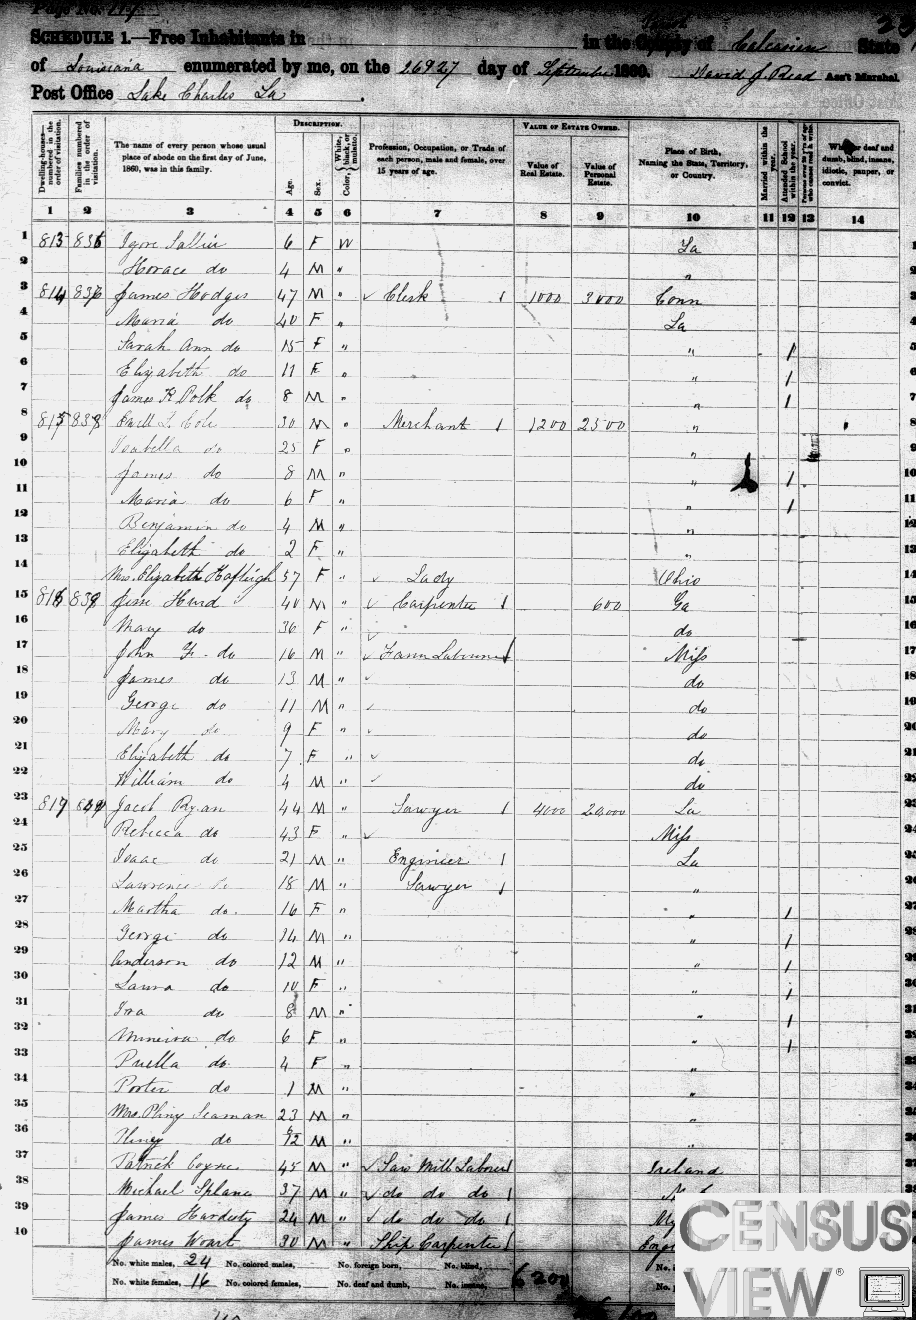 Page No. 119
SCHEDULE 1.—Free Inhabitants in in the Parish County of Calcasieu State
of Louisiana enumerated by me, on the 26 & 27 day of September 1860. David J. Read Ass't Marshal.
Post Office Lake Charles La .
Dwelling-houses—numbered in the order of visitation.
Families numbered in the order of visitation.
The name of every person whose usual place of abode on the first day of June, 1860, was in this family.
DESCRIPTION.
Age.
Sex.
Color, White, black, or mulatto.
Profession, Occupation, or Trade of each person, male and female, over 15 years of age.
VALUE OF ESTATE OWNED.
Value of Real Estate.
Value of Personal Estate.
Place of Birth, Naming the State, Territory, or Country.
Married within the year.
Attended School within the year.
Whether deaf and dumb, blind, insane, idiotic, pauper, or convict.
1 2 3 4 5 6 7 8 9 10 11 12 13 14
1 813 Sallier 6 F W La 1
2 Horace do 4 M " "
3 814 836 James Hodges 47 M " Clerk 1 1000 3000 Conn 3
4 Maria do 40 F " La 4
5 Sarah Ann do 15 F " " 1 5
6 Elizabeth do 11 F " " 1 6
7 James K Polk do 8 M " " 1 7
8 815 Cole 30 M " Merchant 1 1200 2500 " 8
9 Isabella do 25 F " " 9
10 James do 8 M " " 1 10
11 Maria do 6 F " " 1 11
12 Benjamin do 4 M " " 12
13 Elizabeth do 2 F " " 13
14 Mrs. Elizabeth Hafleigh 57 F " Lady Ohio 14
15 816 Jesse Hurd 40 M " Carpenter 1 600 Ga 15
16 Mary do 36 F " do 16
17 John F. do 16 M " Farm Labourer 1 Miss 17
18 James do 13 M " do 18
19 George do 11 M " do 19
20 Mary do 9 F " do 20
21 Elizabeth do 7 F " do 21
22 William do 4 M " do 22
23 817 Jacob Ryan 44 M " Sawyer 1 4000 20,000 La 23
24 Rebecca do 43 F " Miss 24
25 Isaac do 21 M " Enginier 1 La 25
26 Lawrence do 18 M " Sawyer 1 " 26
27 Martha do. 16 F " " 1 27
28 George do 14 M " " 1 28
29 Anderson do 12 M " " 1 29
30 Laura do 10 F " " 1 30
31 Ira do 8 M " " 1 31
32 Minerva do 6 F " " 1 32
33 Puella do. 4 F " " 33
34 Porter do 1 M " " 34
35 Mrs. Pliny Seaman 23 M " " 35
36 Pliney do 6/12 M " " 36
37 Patrick Coyne 45 M " Saw Mill Laborer 1 Ireland 37
38 Michael Splane 37 M " do do do 1 38
39 James Hardesty 24 M " do do do 1 39
40 James 30 M " Ship Carpenter 1
No. white males, 24 No. colored males, No. foreign born, No. blind,
No. white females, 16 No. colored females, No. deaf and dumb, No. insane, 6200
CENSUS
VIEW®